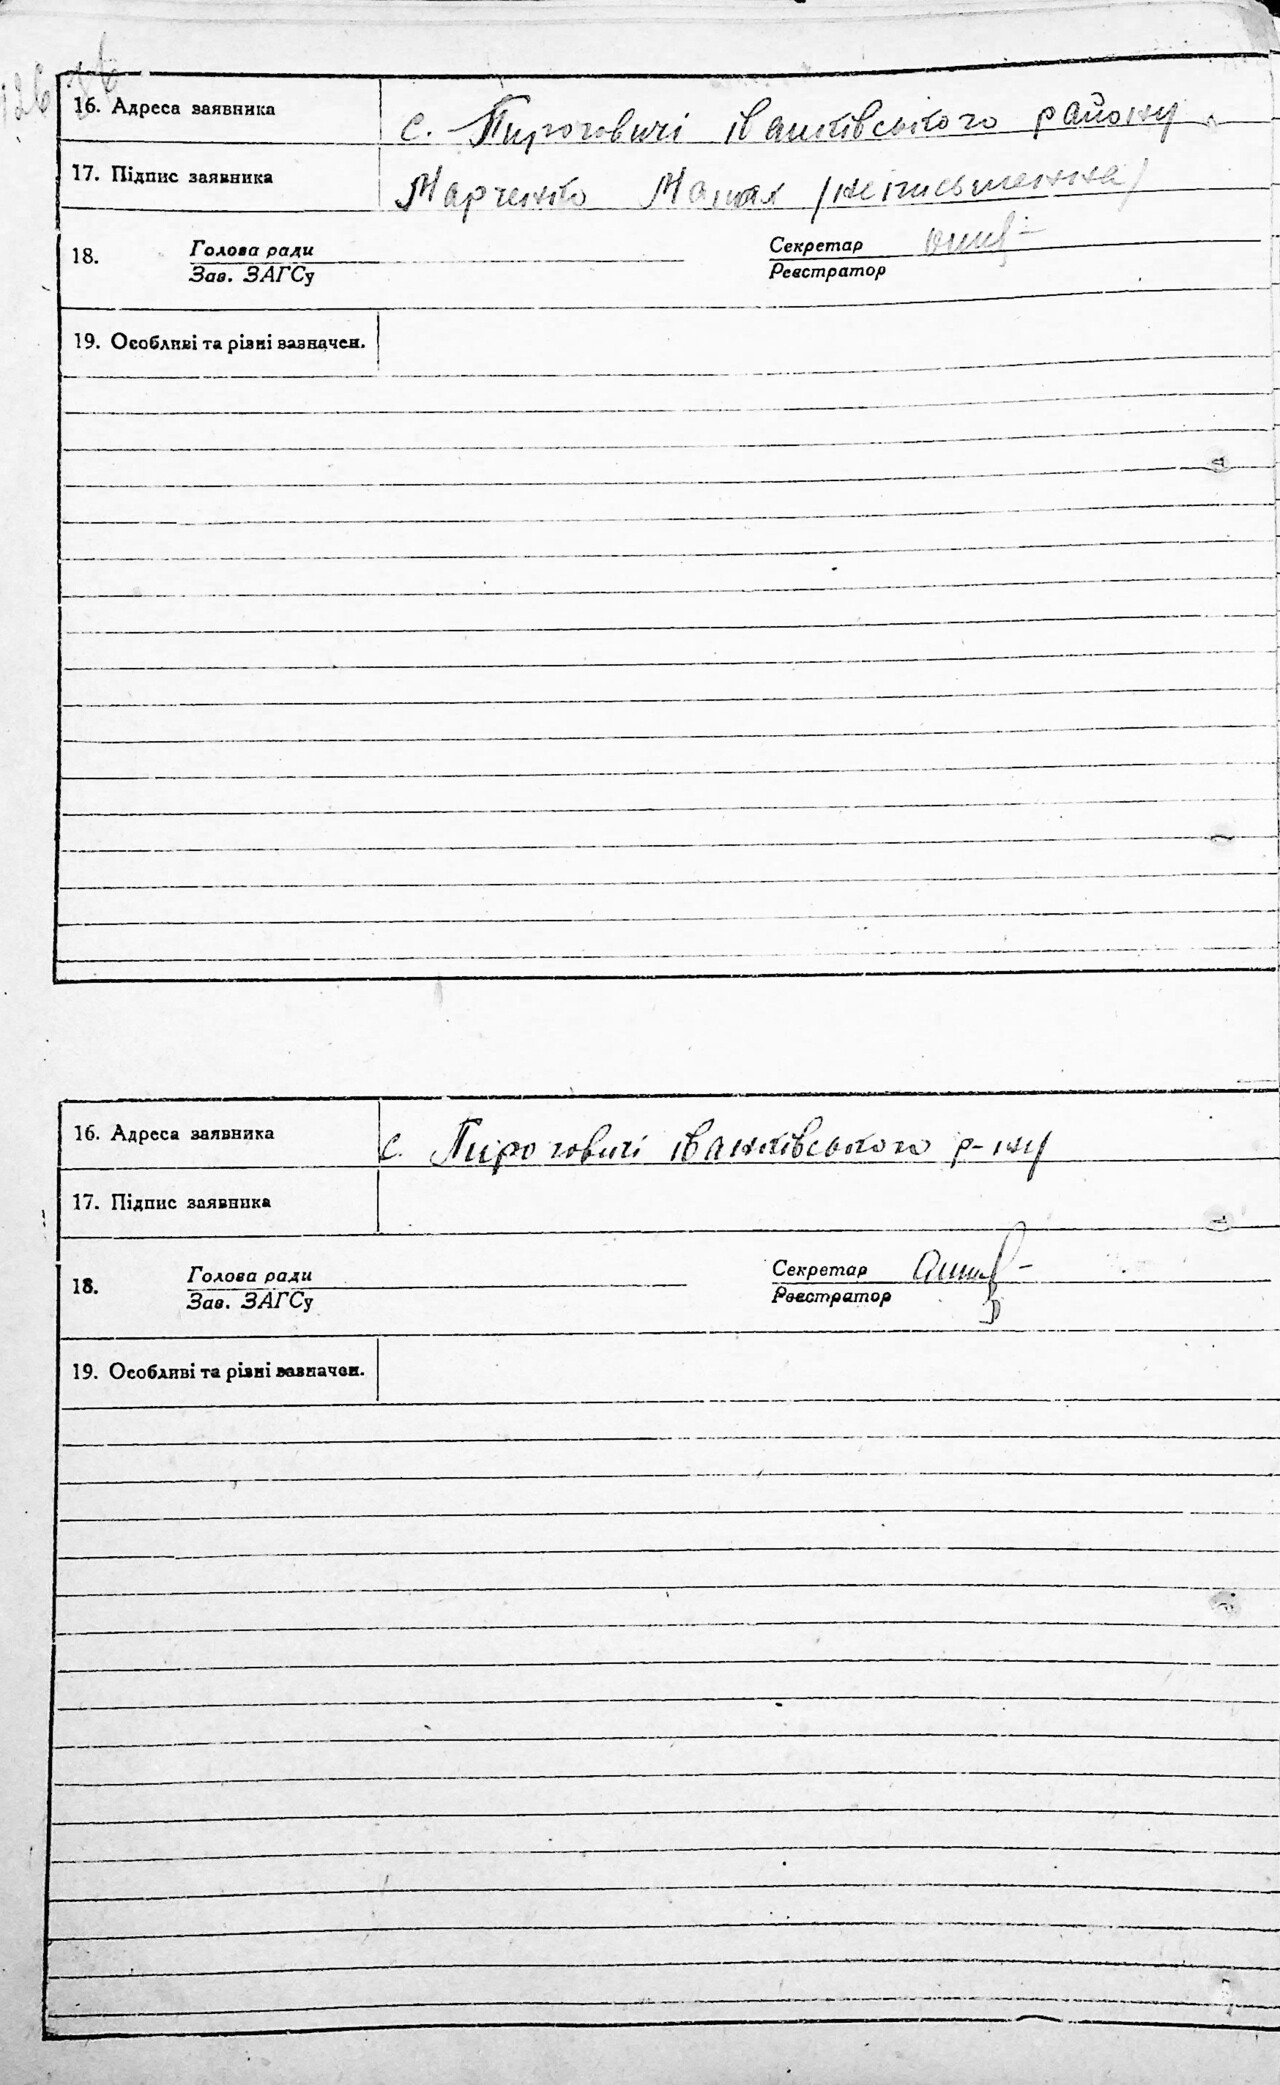 126
16. Адреса заявника с. Пироговичі Іванківського району
17. Підпис заявника Марченко (неписьменна)
18. Голова ради Секретар
Зав. ЗАГСу Реєстратор
19. Особливі та різні зазначен.
16. Адреса заявника с. Пироговичі Іванківського р-ну
17. Підпис заявника
18. Голова ради Секретар
Зав. ЗАГСу Реєстратор
19. Особливі та різні зазначен.